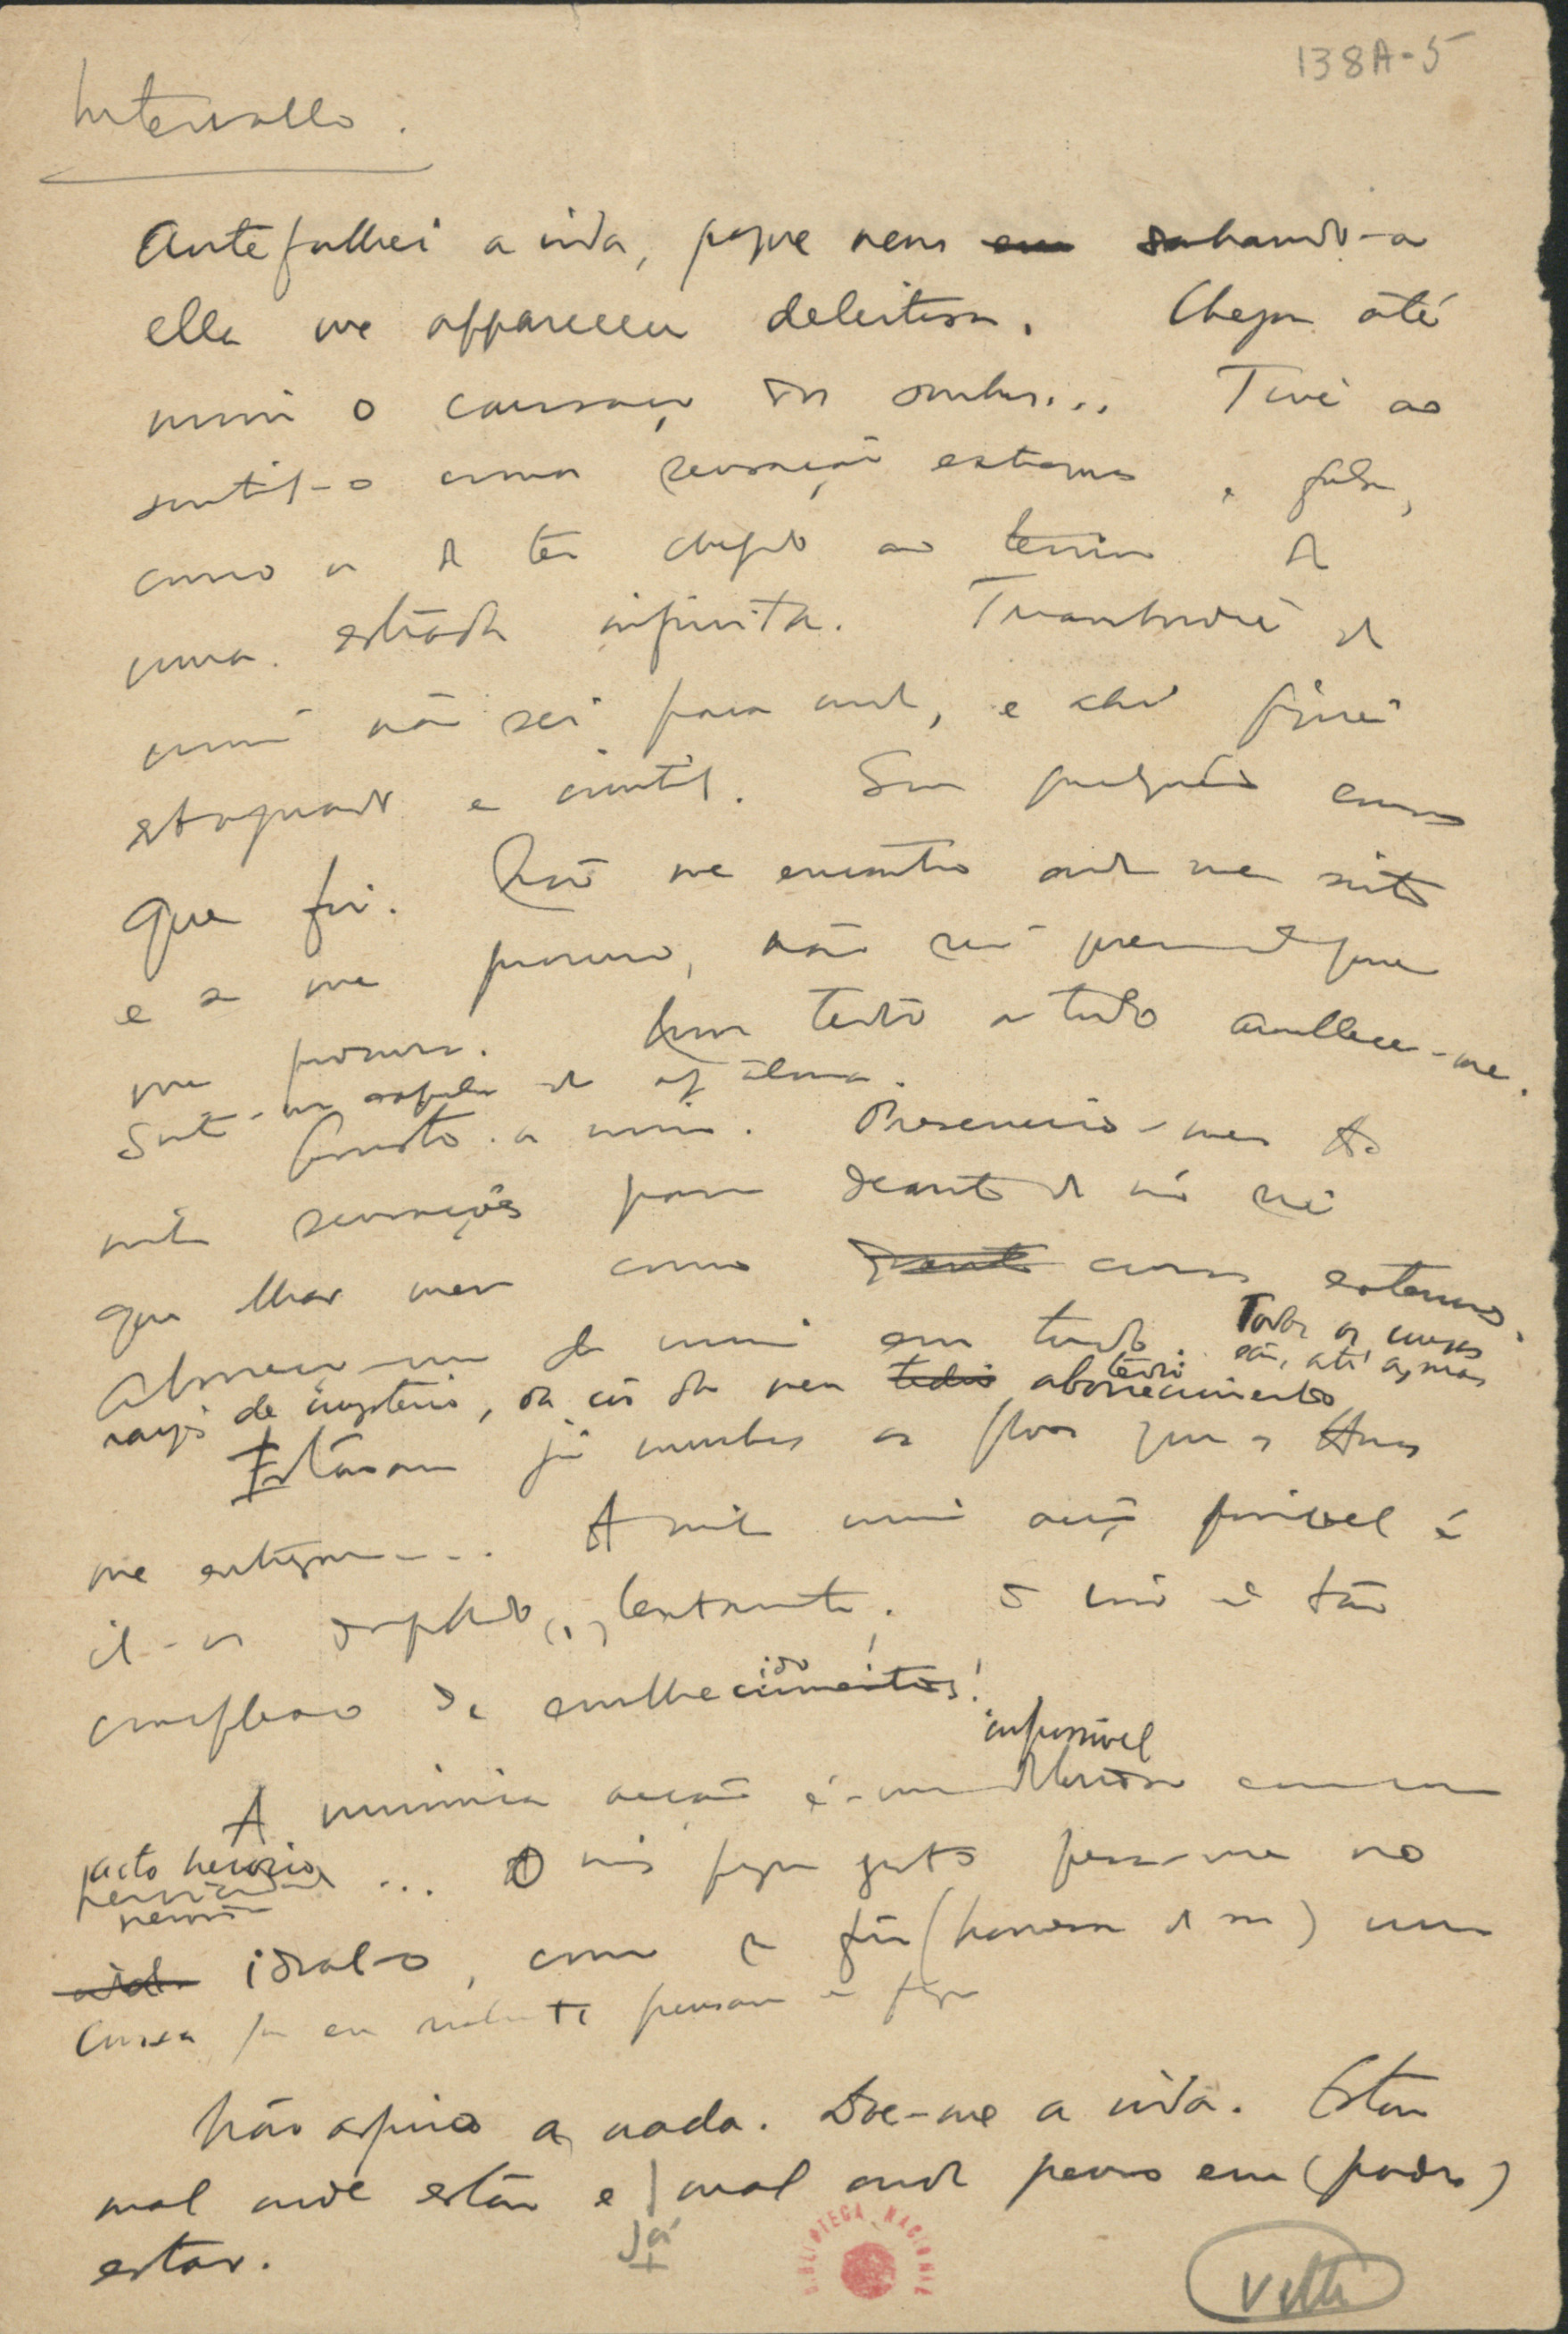 138A-5
Intervallo.
Antefalhei a vida, porque nem sonhando-a
ella me appareceu deleitosa. Chegou até
mim o cansaço dos sonhos... Tive ao
sentil-o uma sensação externa e falsa,
como a de ter chegado ao termino de
uma estrada infinita. Transbordei de
mim não sei para onde, e ahi fiquei
estagnado e inutil. Sou qualquér cousa
que fui. Não me encontro onde me sinto
e se me procuro, não sei quem é que
me procura. Um tedio a tudo amollece-me.
Sinto-me expulso de m/ alma.
Assisto a mim. Presenceio-me. As
m/as sensações passam deante de não sei
que olhar meu como cousas externas.
Aborreço-me de mim em tudo. Todas as cousas
são, até ás suas
raizes de mysterio, da côr do meu aborrecimento
tedio
Estavam já murchas as flores que as Horas
me entregaram... A m/a unica acção possivel é
il-as desfolhando, lentamente. E isso é tão
complexo de envelhecimentos!
ido!
impossivel
A minima acção é-me dolorosa como uma
acto heroico
... O mais pequeno gesto pesa-me no
ideal-o, como se fôra (houvera de ser) uma
cousa que eu realmente pensasse em fazer
Não aspiro a nada. Doe-me a vida. Estou
mal onde estou e já mal onde penso em (poder)
já
estar.
BIBLIOTECA NACIONAL